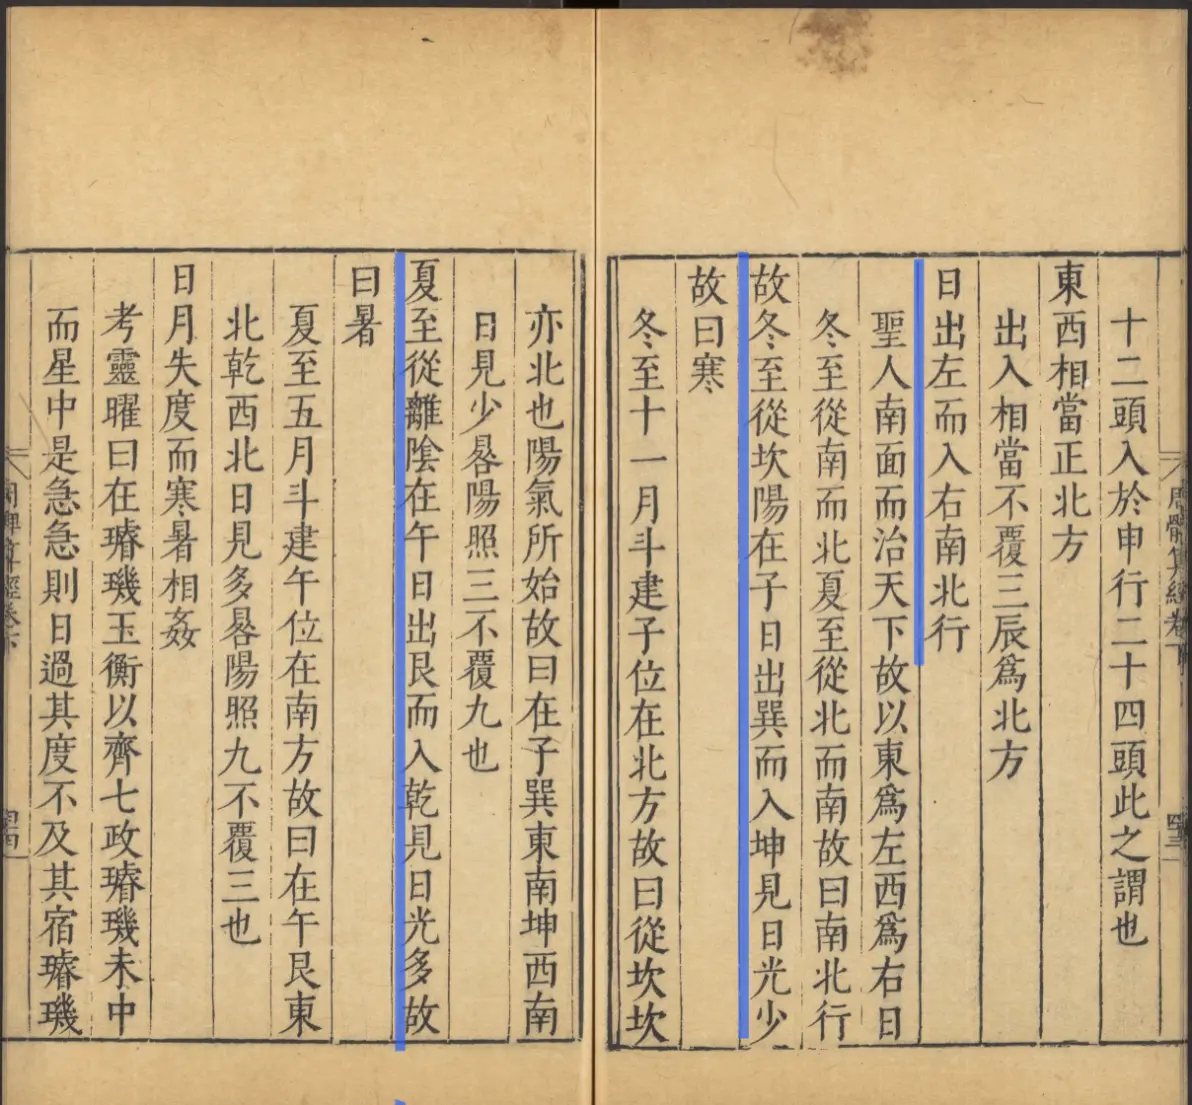 周髀算經卷下
十二頭入於申行二十四頭此之謂也
東西相當正北方
出入相當不覆三辰爲北方
日出左而入右南北行
聖人南面而治天下故以東爲左西爲右日
冬至從南而北夏至從北而南故曰南北行
故冬至從坎陽在子日出巽而入坤見日光少
故曰寒
冬至十一月斗建子位在北方故曰從坎坎
亦北也陽氣所始故曰在子巽東南坤西南
日見少晷陽照三不覆九也
夏至從離陰在午日出艮而入乾見日光多故
曰暑
夏至五月斗建午位在南方故曰在午艮東
北乾西北日見多晷陽照九不覆三也
日月失度而寒暑相姦
考靈曜曰在璿璣玉衡以齊七政璿璣未中
而星中是急急則日過其度不及其宿璿璣